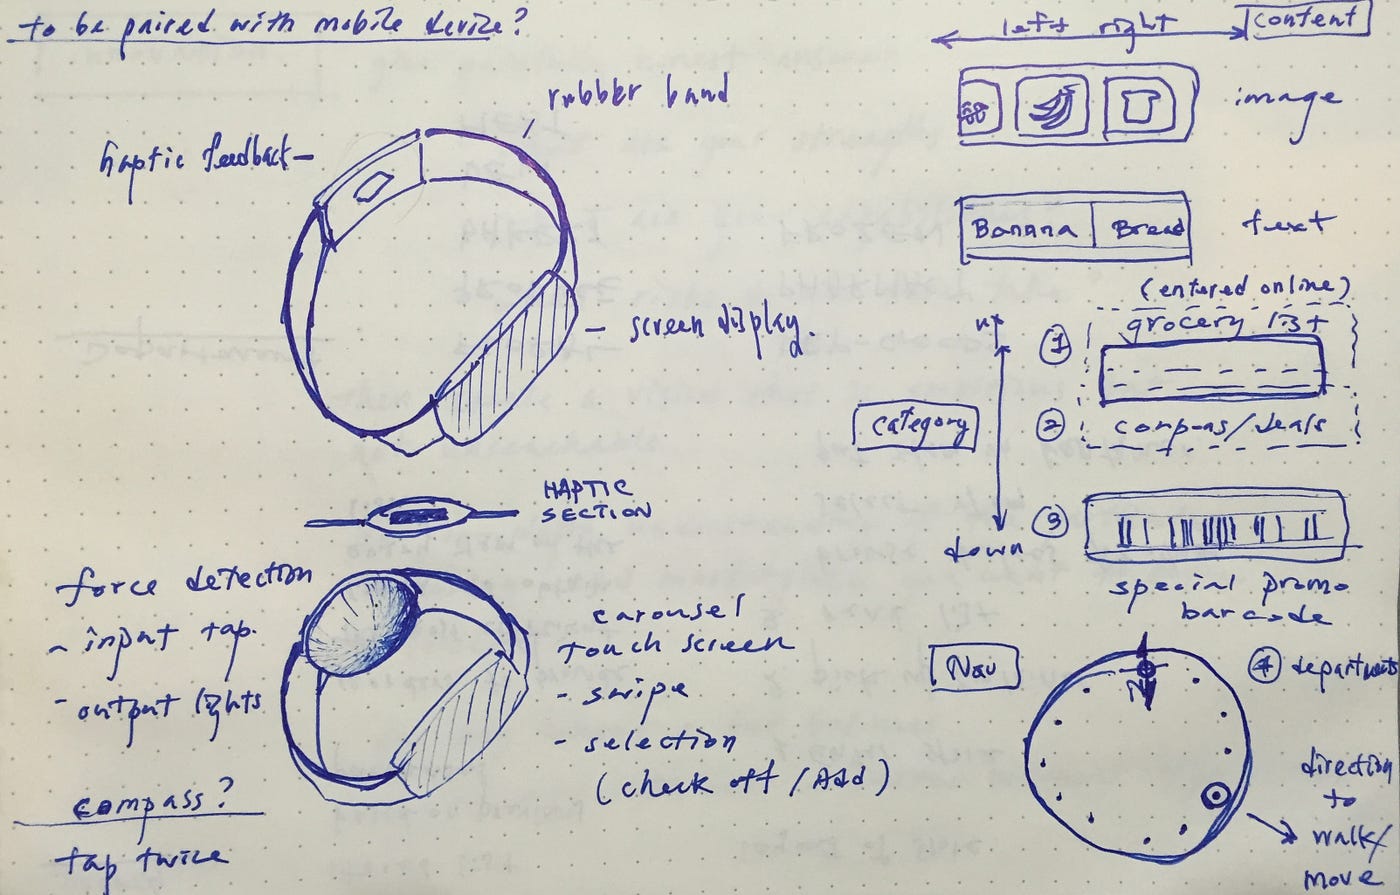 to be paired with mobile device?
rubber band
haptic feedback
screen display.
HAPTIC
SECTION
force detection
- input tap.
- output lights
compass?
tap twice
carousel
touch screen
- swipe
- selection
(check off / Add)
left right
content
image
Banana Bread
text
(entered online)
up
1 grocery list
category
2 coupons/deals
down
3
special promo
barcode
Nav
N
4 departments
direction
to
walk/
move